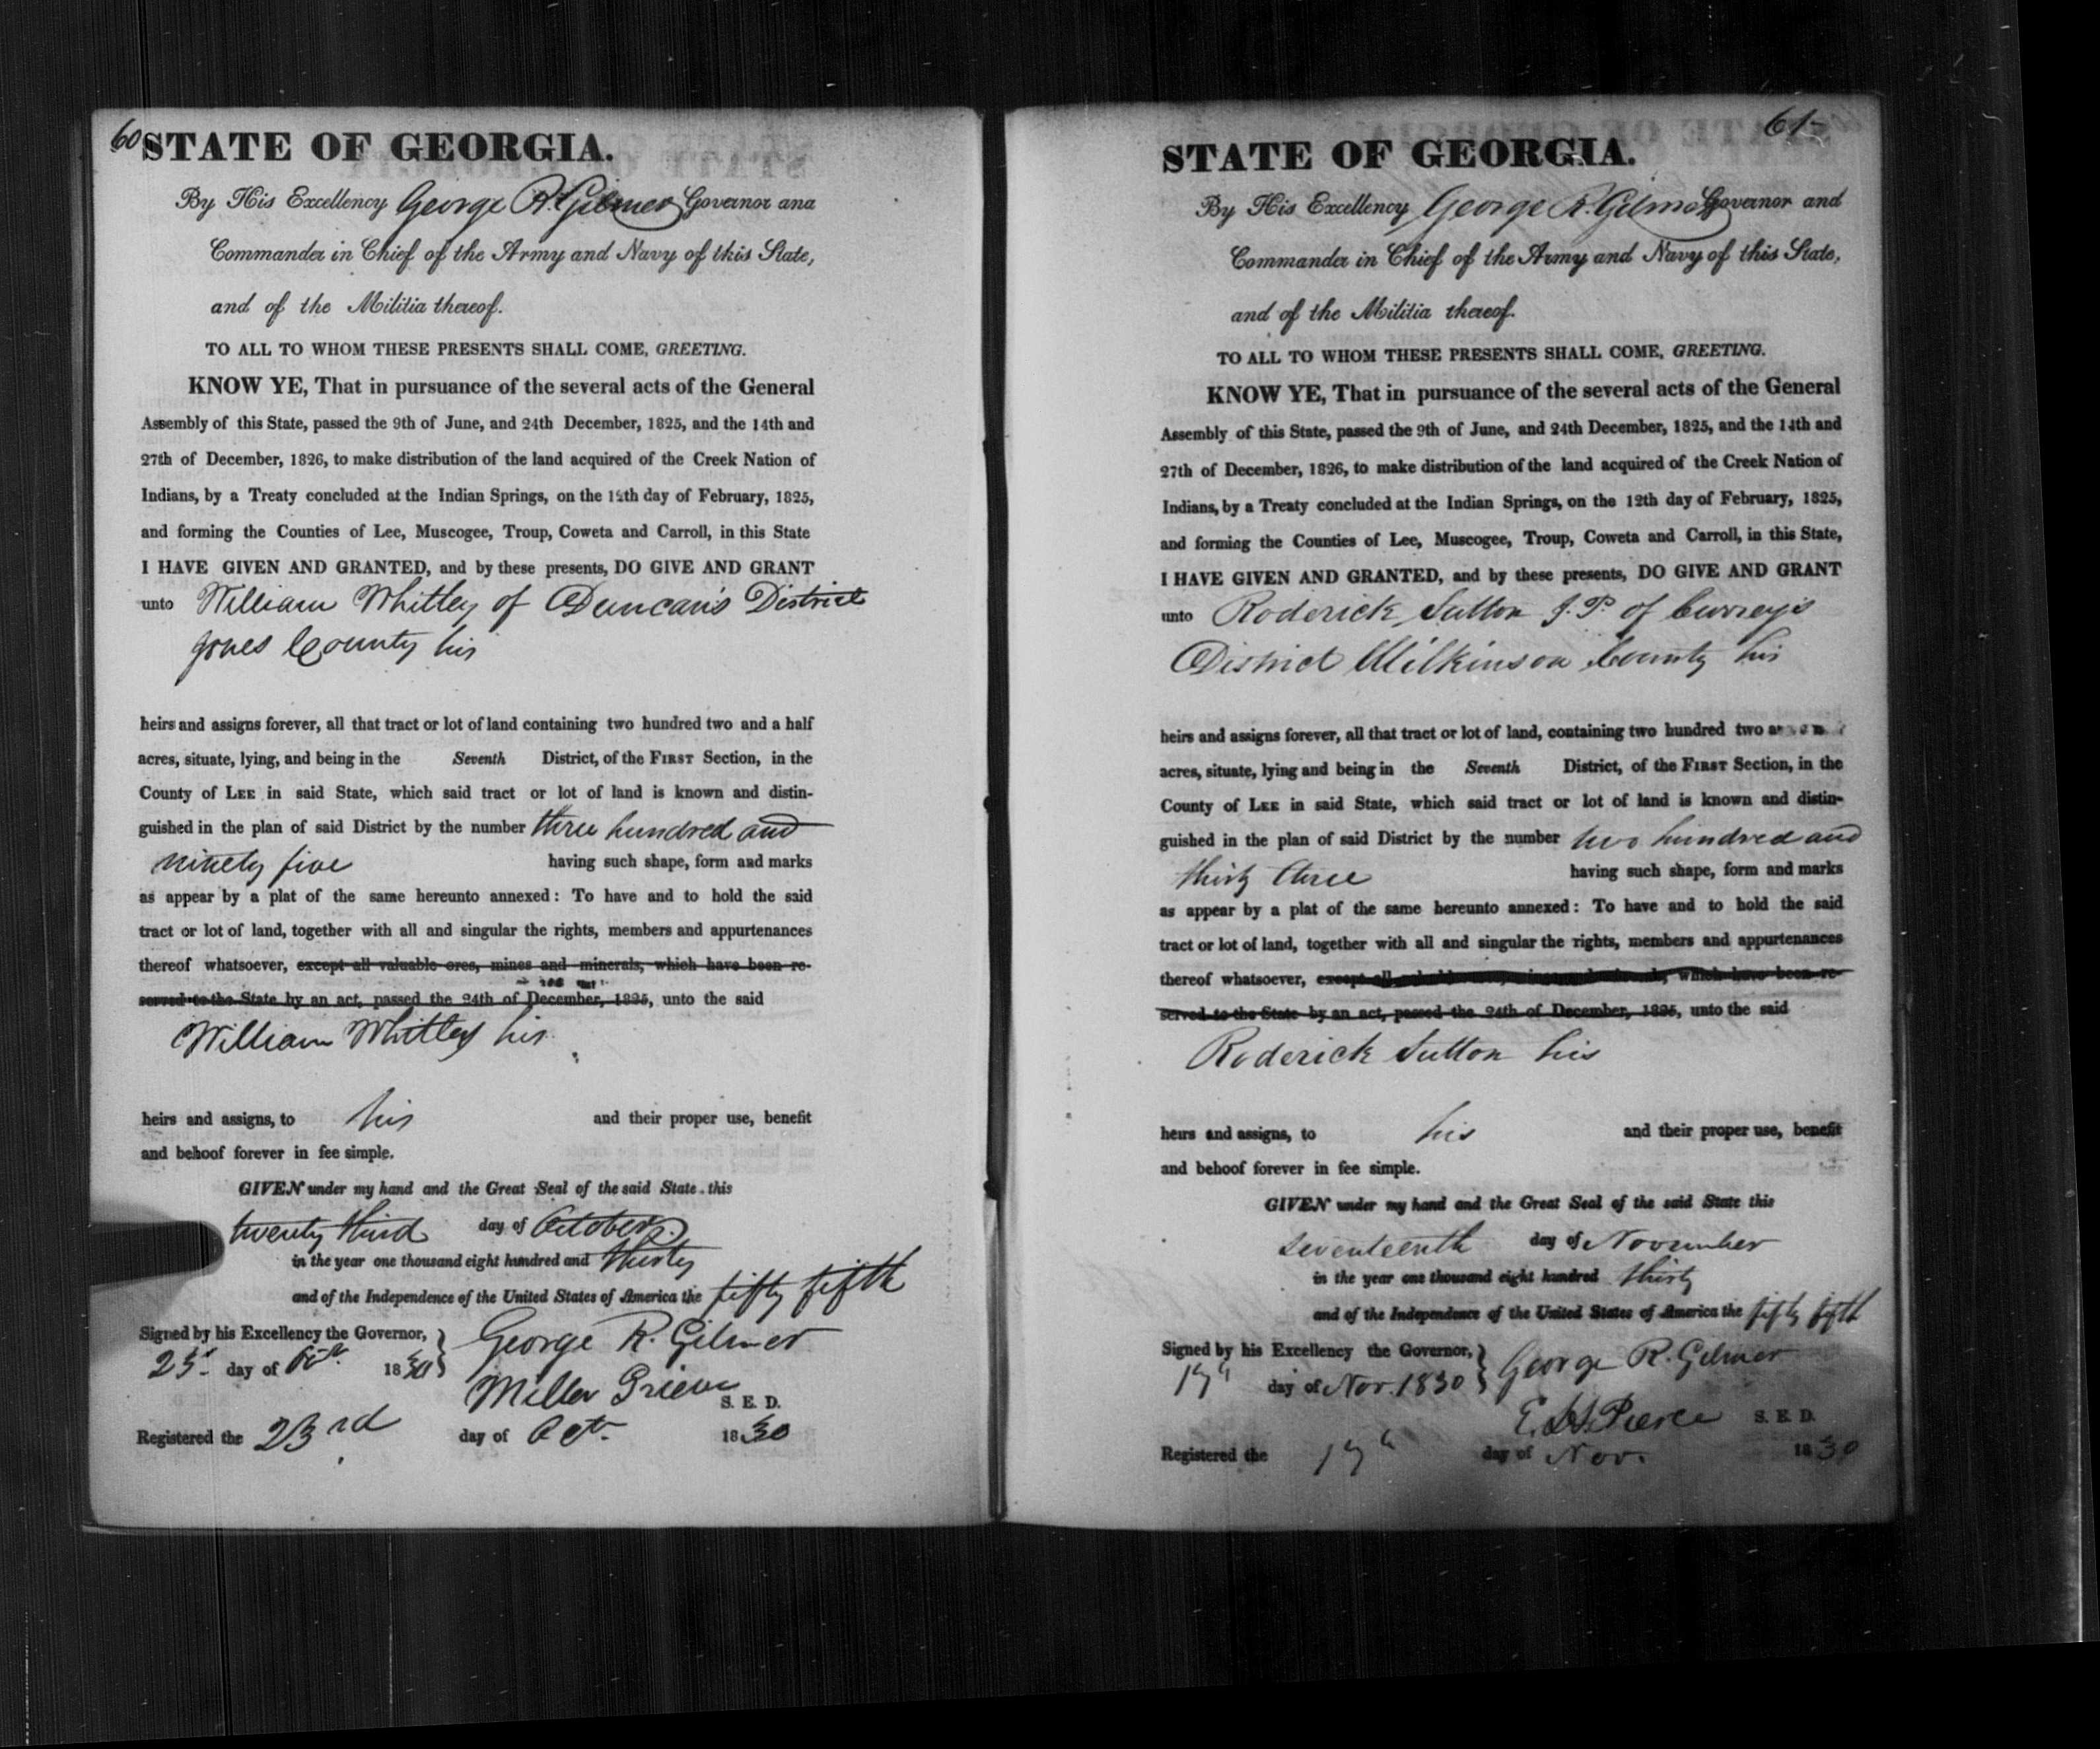 60
STATE OF GEORGIA.
By His Excellency George R. Gilmer Governor and
Commander in Chief of the Army and Navy of this State,
and of the Militia thereof.
TO ALL TO WHOM THESE PRESENTS SHALL COME, GREETING.
KNOW YE, That in pursuance of the several acts of the General
Assembly of this State, passed the 9th of June, and 24th December, 1825, and the 14th and
27th of December, 1826, to make distribution of the land acquired of the Creek Nation of
Indians, by a Treaty concluded at the Indian Springs, on the 12th day of February, 1825,
and forming the Counties of Lee, Muscogee, Troup, Coweta and Carroll, in this State
I HAVE GIVEN AND GRANTED, and by these presents, DO GIVE AND GRANT
unto William Whitley of Duncan's District
Jones County his
heirs and assigns forever, all that tract or lot of land containing two hundred two and a half
acres, situate, lying, and being in the Seventh District, of the FIRST Section, in the
County of LEE in said State, which said tract or lot of land is known and distin-
guished in the plan of said District by the number three hundred and
ninety five having such shape, form and marks
as appear by a plat of the same hereunto annexed: To have and to hold the said
tract or lot of land, together with all and singular the rights, members and appurtenances
thereof whatsoever, except all valuable ores, mines and minerals, which have been re-
served to the State by an act, passed the 24th of December, 1825, unto the said
William Whitley his
heirs and assigns, to his and their proper use, benefit
and behoof forever in fee simple.
GIVEN under my hand and the Great Seal of the said State this
twenty third day of October
in the year one thousand eight hundred and thirty
and of the Independence of the United States of America the fifty fifth
Signed by his Excellency the Governor,
23d day of Octr. 1830
George R. Gilmer
Miller Grieve
S. E. D.
Registered the 23rd day of Oct. 1830
61
STATE OF GEORGIA.
By His Excellency George R. Gilmer Governor and
Commander in Chief of the Army and Navy of this State,
and of the Militia thereof.
TO ALL TO WHOM THESE PRESENTS SHALL COME, GREETING.
KNOW YE, That in pursuance of the several acts of the General
Assembly of this State, passed the 9th of June, and 24th December, 1825, and the 14th and
27th of December, 1826, to make distribution of the land acquired of the Creek Nation of
Indians, by a Treaty concluded at the Indian Springs, on the 12th day of February, 1825,
and forming the Counties of Lee, Muscogee, Troup, Coweta and Carroll, in this State,
I HAVE GIVEN AND GRANTED, and by these presents, DO GIVE AND GRANT
unto Roderick Sutton J. P. of Currey's
District Wilkinson County his
heirs and assigns forever, all that tract or lot of land, containing two hundred two
acres, situate, lying and being in the Seventh District, of the FIRST Section, in the
County of LEE in said State, which said tract or lot of land is known and distin-
guished in the plan of said District by the number two hundred and
thirty three having such shape, form and marks
as appear by a plat of the same hereunto annexed: To have and to hold the said
tract or lot of land, together with all and singular the rights, members and appurtenances
thereof whatsoever, except all which have been re-
served to the State by an act, passed the 24th of December, 1825, unto the said
Roderick Sutton his
heirs and assigns, to his and their proper use, benefit
and behoof forever in fee simple.
GIVEN under my hand and the Great Seal of the said State this
seventeenth day of November
in the year one thousand eight hundred thirty
and of the Independence of the United States of America the fifty fifth
Signed by his Excellency the Governor,
17th day of Nov. 1830
George R. Gilmer
E. H. Pierce S. E. D.
Registered the 17th day of Nov. 1830